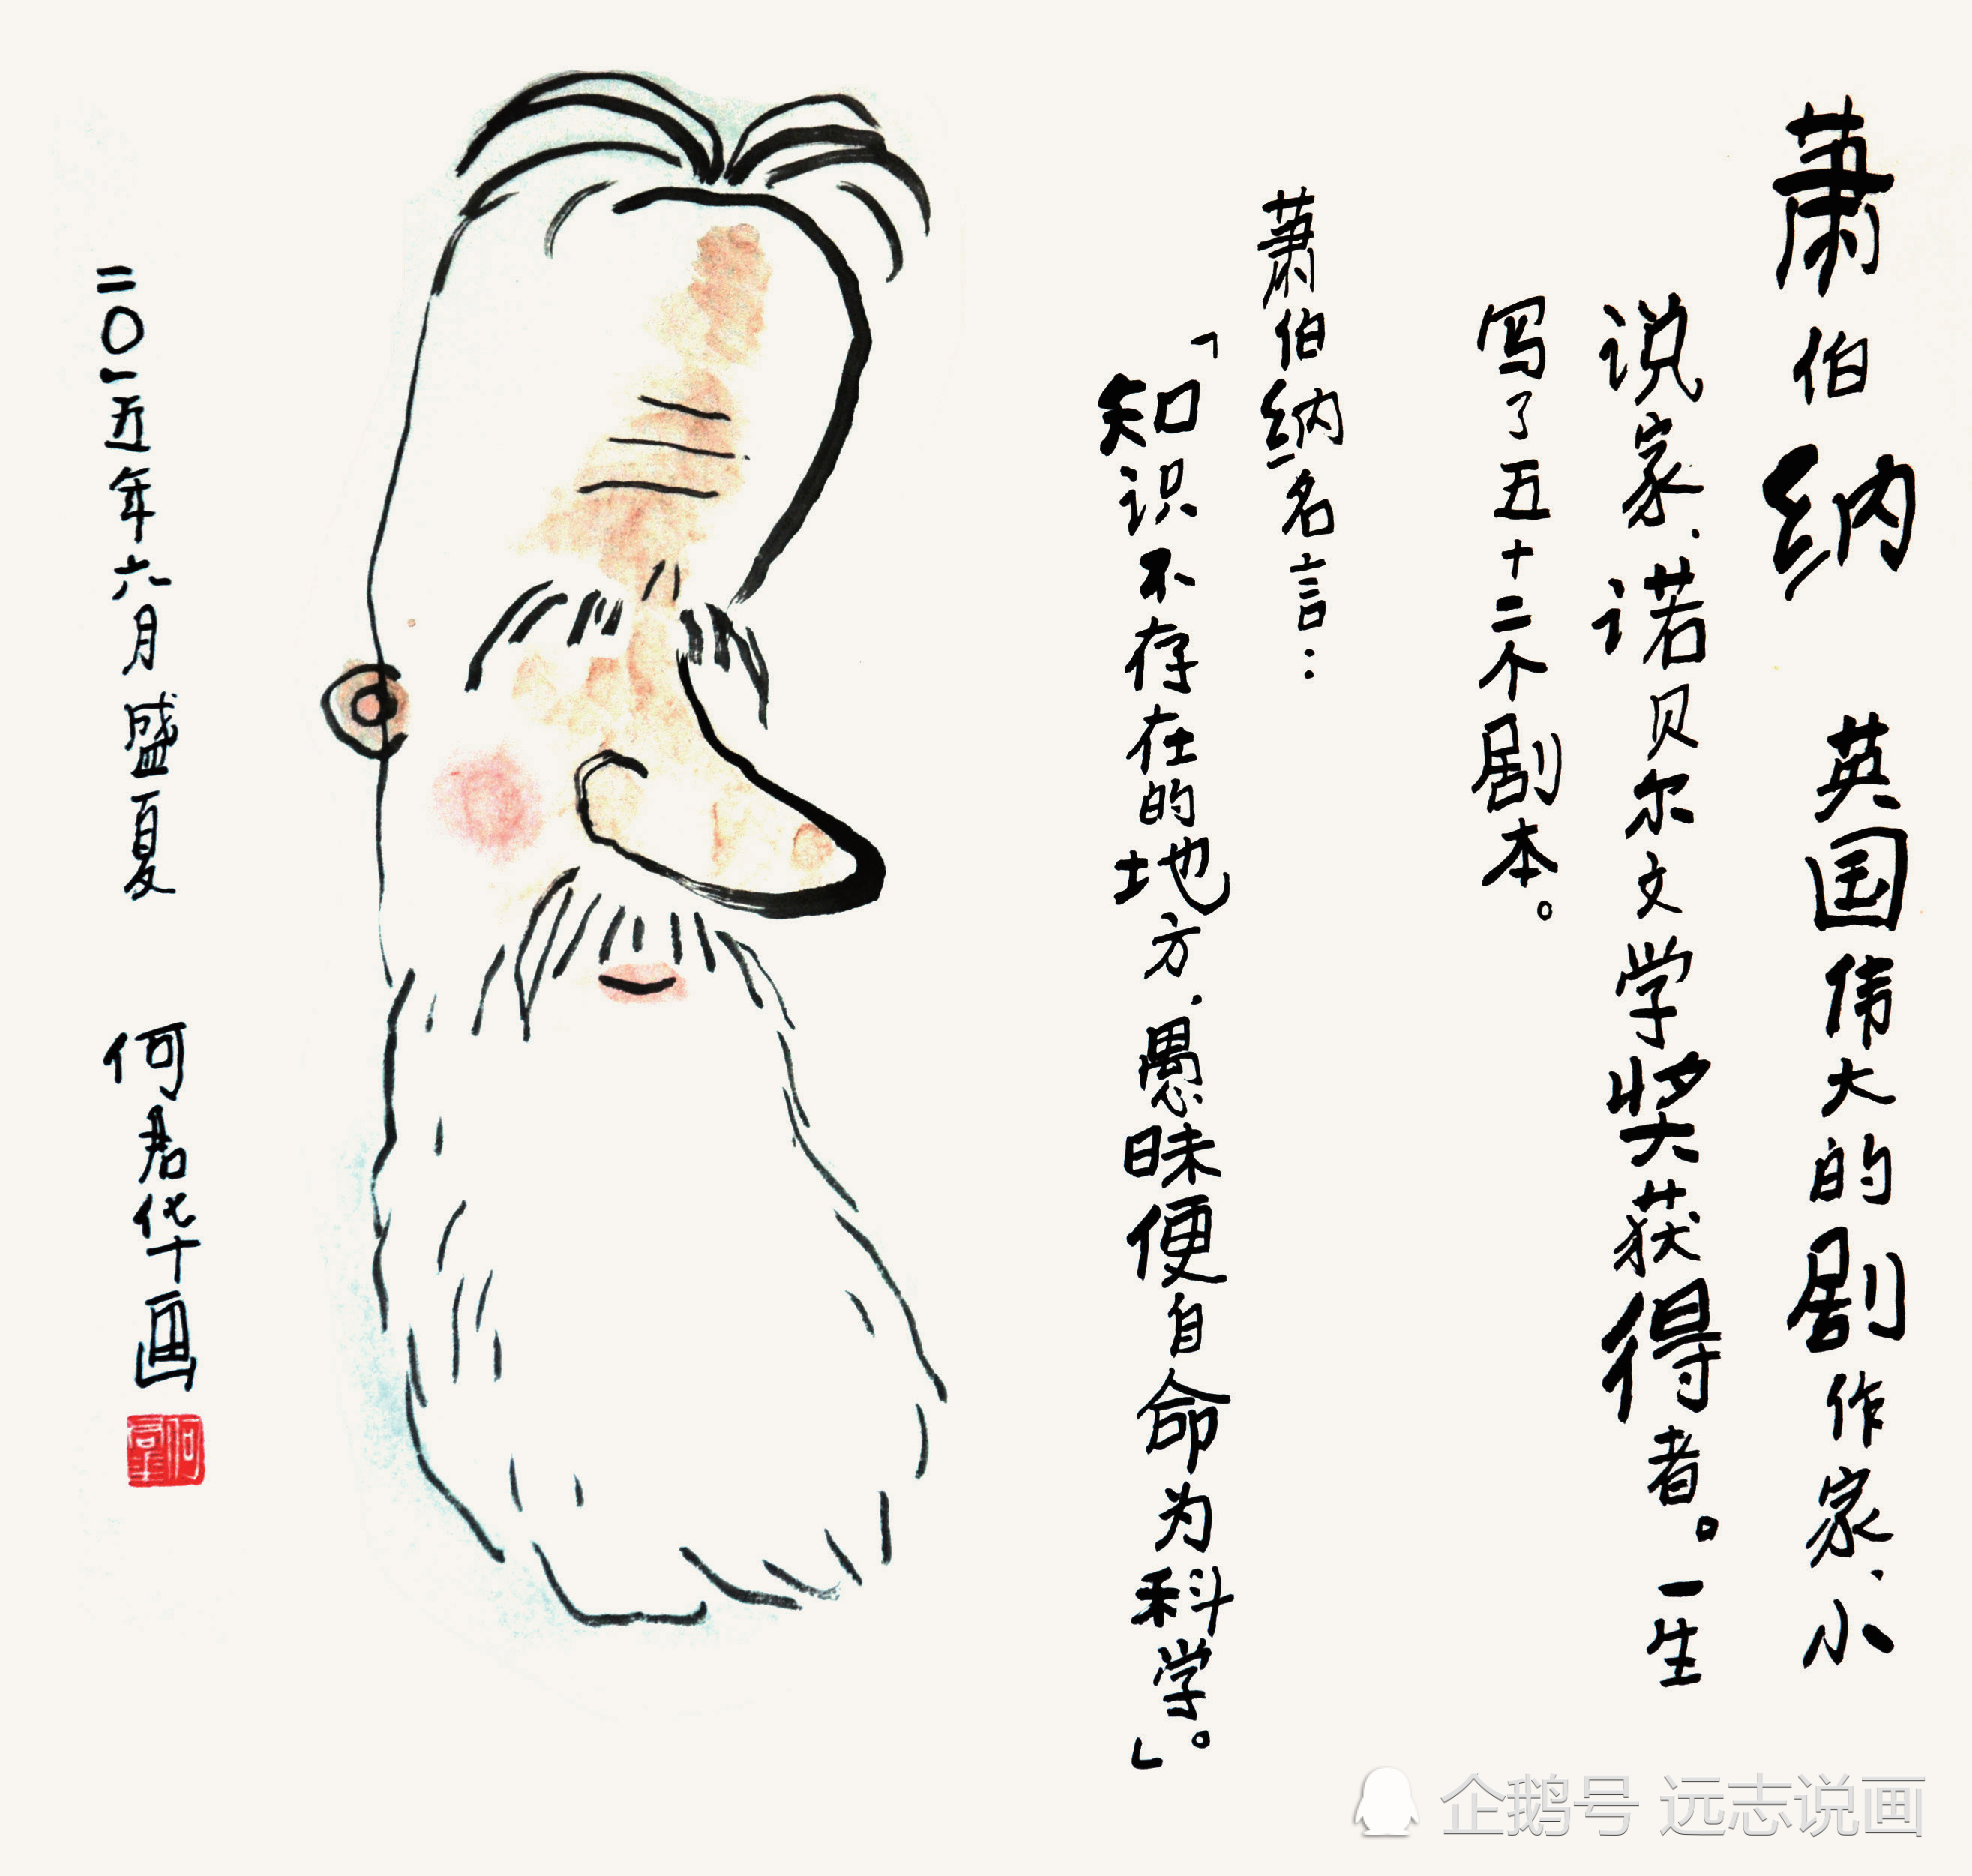 萧伯纳 英国伟大的剧作家、小
说家、诺贝尔文学奖获得者。一生
写了五十二个剧本。
萧伯纳名言：
「知识不存在的地方、愚昧便自命为科学。」
二〇一五年六月盛夏 何君华画
企鹅号 远志说画